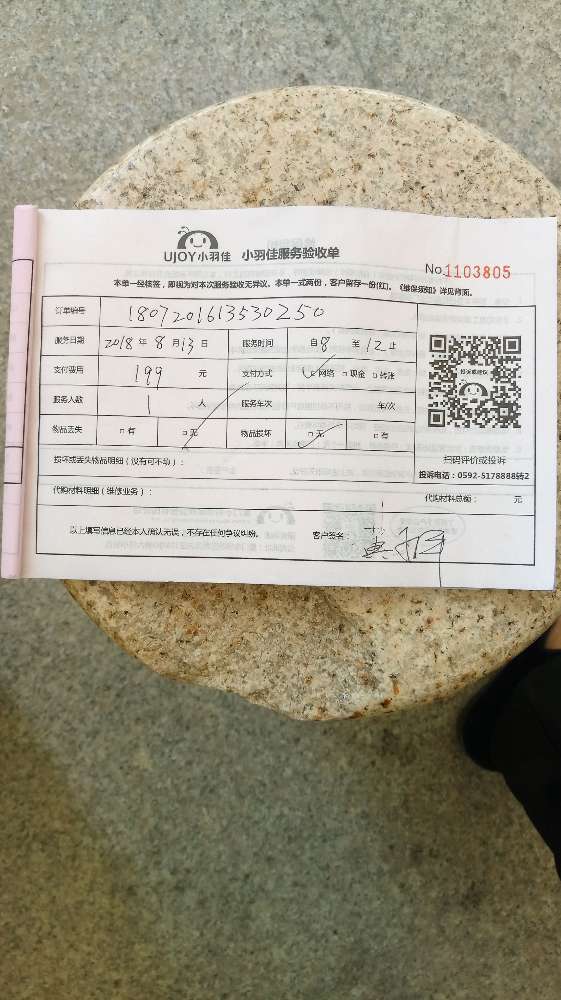 UJOY小羽佳 小羽佳服务验收单
No.1103805
本单一经核签，即视为对本次服务验收无异议。本单一式两份，客户留存一份(红)。《维保须知》详见背面。
订单编号 1807201613530250
服务日期 2018 年 8 月 13 日 服务时间 自 8 至 12 止
支付费用 199 元 支付方式 □网络 □现金 □转账
服务人数 1 人 服务车次 车/次
物品丢失 □有 □无 物品损坏 □无 □有
投诉或建议
扫码评价或投诉
投诉电话：0592-5178888转2
损坏或丢失物品明细（没有可不动）：
代购材料明细（维修业务）： 代购材料总额： 元
以上填写信息已经本人确认无误，不存在任何争议纠纷。 客户签名：